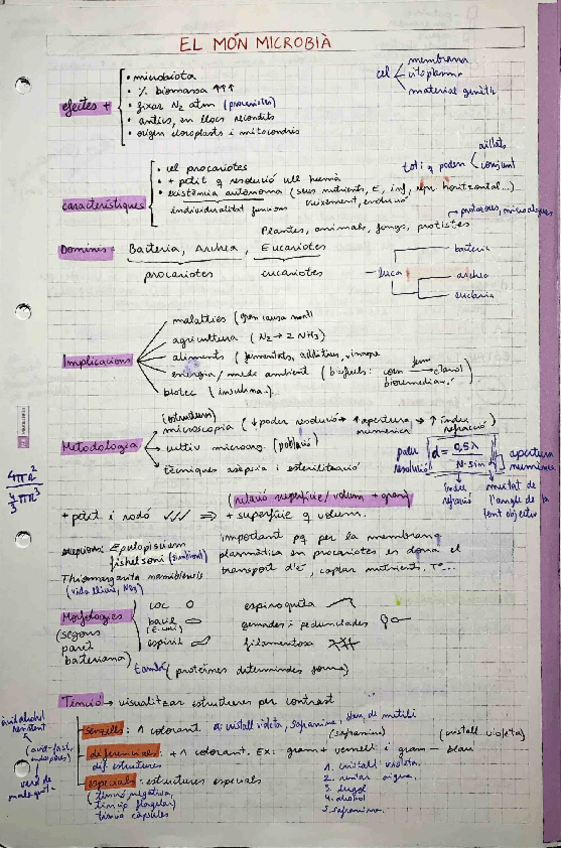 EL MÓN MICROBIÀ
efectes +
• microbiota
• % biomassa ↑↑↑
• fixar N2 atm (procariotes)
• antics, en llocs recòndits
• origen cloroplasts i mitocondris
cel
membrana
citoplasma
material genètic
característiques
• cel procariotes
• + petit q resolució ull humà
• existència autònoma (seus nutrients, E, inf, repr horitzontal...)
individualitat funcions creixement, evolució
tot i q poden
aïllats
conjunt
protozous, microalgues
Plantes, animals, fongs, protistes
Dominis: Bacteria, Archea, Eucariotes
procariotes eucariotes
luca
bacteria
archea
eucaria
Implicacions
malalties (gran causa mort)
agricultura (N2 → 2 NH3)
aliments (fermentats, additius, vinagre
energia / medi ambient (biofuels: corn ferm → etanol)
bioremediac.
biotec (insulina..)
Metodologia
(estructura)
microscopia (↓ poder resolució → ↑ apertura numèrica → ↑ índex refracció)
cultiu microorg. (població)
tècniques asèpsia i esterilització
poder resolució
d = 0,5λ / N·sin
apertura numèrica
índex refració
meitat de l'angle de la lent objectiu
4πR²
4/3 πR³
(relació superfície/volum + gran)
+ petit i rodó ✓✓✓ ⇒ + superfície q volum.
Epulopiscium fishelsoni (simbiont)
Thiomargarita namibiensis
(vida lliure, NO3)
important pq per la membrana
plasmàtica en procariotes es dona el
transport d'e⁻, captar nutrients, Tº...
Morfologies
(segons paret bacteriana)
coc
bacil
(E. coli)
espiril
espiroqueta
gemades i pedunculades
filamentosa
també (proteïnes determinades forma)
Tinció → visualitzar estructures per contrast
senzills: 1 colorant ex: cristall violeta, safranina, blau de metilè
(safranina) (cristall violeta)
diferencials: + 1 colorant. Ex: gram + vermell i gram − blau
dif estructures
especials: estructures especials
(tinció negativa,
tinció flagelar)
tinció càpsules
1. cristall violeta.
2. rentar aigua.
3. lugol
4. alcohol
5. safranina.
àcid alcohol resistent
(acid-fast,
endospores)
verd de malaquita